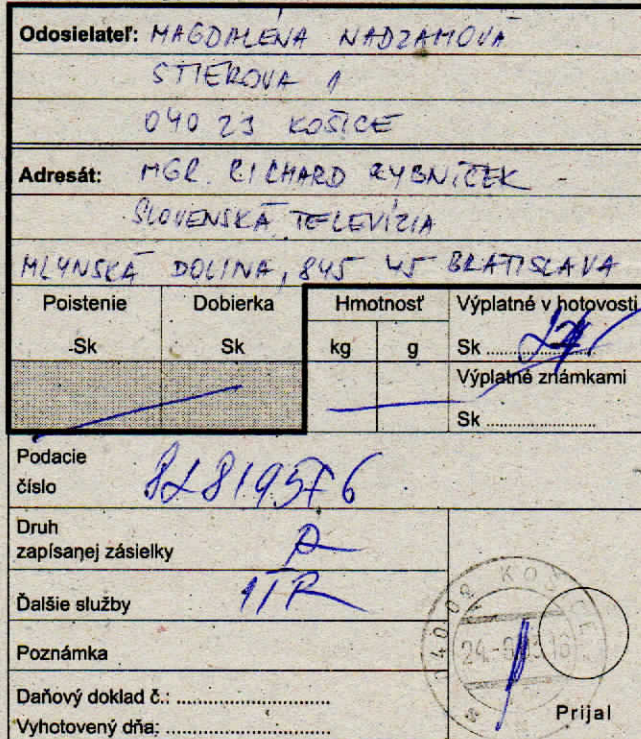 Odosielateľ: MAGDALÉNA NADZAMOVÁ
STIEROVA 1
040 23 KOŠICE
Adresát: MGR. RICHARD RYBNÍČEK -
SLOVENSKÁ TELEVÍZIA
MLYNSKÁ DOLINA, 845 45 BRATISLAVA
Poistenie Dobierka Hmotnosť Výplatné v hotovosti
Sk Sk kg g Sk
Výplatné známkami
Sk
Podacie
číslo
Druh
zapísanej zásielky
Ďalšie služby
Poznámka
Daňový doklad č.:
Vyhotovený dňa:
Prijal